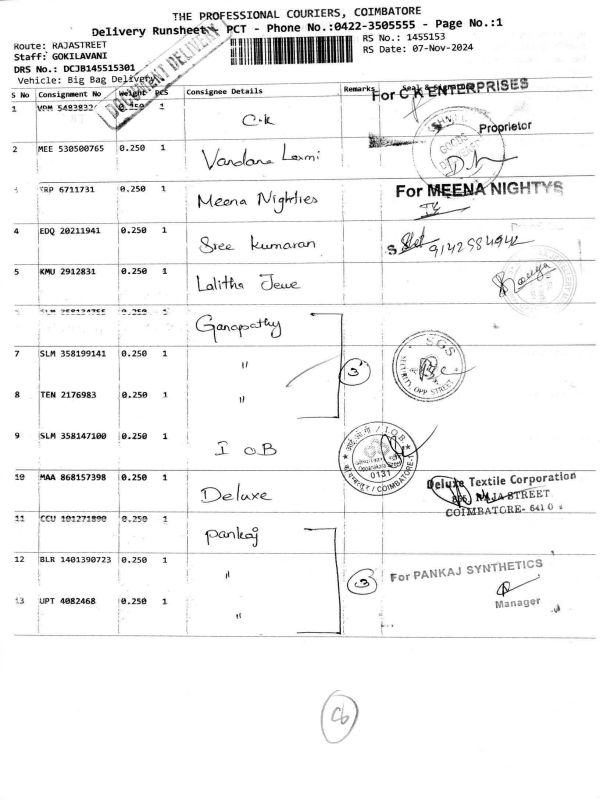 THE PROFESSIONAL COURIERS, COIMBATORE
Delivery Runsheet PCT - Phone No.:0422-3505555 - Page No.:1
Route: RAJASTREET
RS No.: 1455153
Staff: GOKILAVANI
RS Date: 07-Nov-2024
DRS No.: DCJB145515301
Vehicle: Big Bag Delivery
DOCUMENT DELIVERY
S No Consignment No Weight PCS Consignee Details Remarks
For C K ENTERPRISES
1 0.250 1 C.K
Proprietor
2 MEE 530500765 0.250 1 Vandana Laxmi
TRP 6711731 0.250 1 Meena Nighties
For MEENA NIGHTYS
4 EDQ 20211941 0.250 1 Sree Kumaran
9142584942
5 KMU 2912831 0.250 1 Lalitha Jewe
0.250 1 Ganapathy
7 SLM 358199141 0.250 1 "
3
SGS
SECURITY OPP STREET
8 TEN 2176983 0.250 1 "
9 SLM 358147100 0.250 1 I OB
I.O.B.
0131
COIMBATORE
10 MAA 868157398 0.250 1 Deluxe
Deluxe Textile Corporation
RAJA STREET
COIMBATORE- 641 0
11 CCU 101271890 0.250 1 pankaj
12 BLR 1401390723 0.250 1 "
3
For PANKAJ SYNTHETICS
Manager
13 UPT 4082468 0.250 1 "